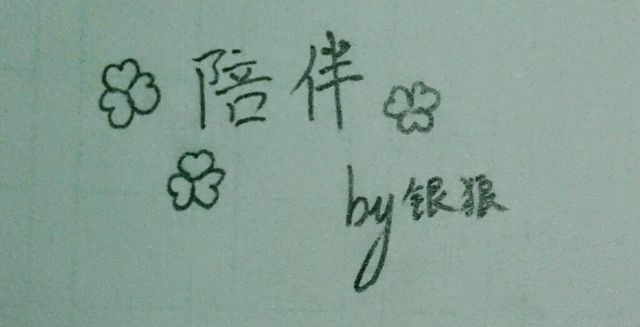 陪伴
by银狼